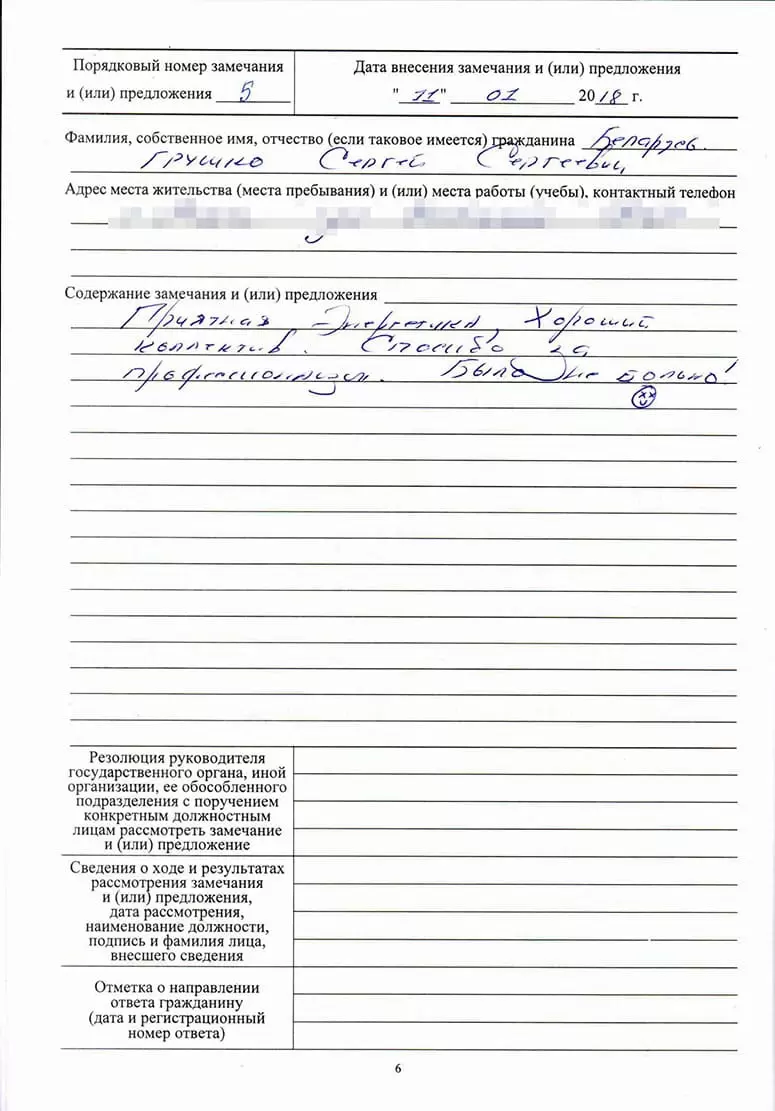 Порядковый номер замечания
и (или) предложения 5
Дата внесения замечания и (или) предложения
"11" 01 2018 г.
Фамилия, собственное имя, отчество (если таковое имеется) гражданина
Грушко Сергей Сергеевич
Адрес места жительства (места пребывания) и (или) места работы (учебы), контактный телефон
Содержание замечания и (или) предложения
Приятная энергетика, Хороший
коллектив. Спасибо за
профессионализм. Было не больно!
Резолюция руководителя
государственного органа, иной
организации, ее обособленного
подразделения с поручением
конкретным должностным
лицам рассмотреть замечание
и (или) предложение
Сведения о ходе и результатах
рассмотрения замечания
и (или) предложения,
дата рассмотрения,
наименование должности,
подпись и фамилия лица,
внесшего сведения
Отметка о направлении
ответа гражданину
(дата и регистрационный
номер ответа)
6